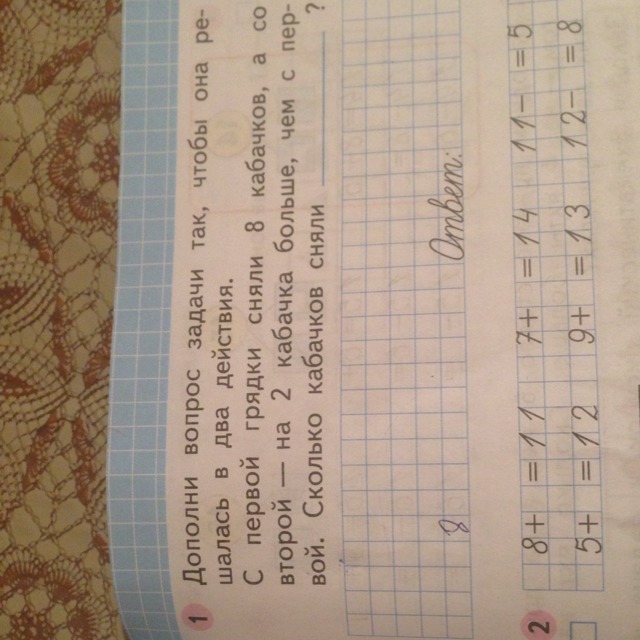 1 Дополни вопрос задачи так, чтобы она ре-
шалась в два действия.
С первой грядки сняли 8 кабачков, а со
второй — на 2 кабачка больше, чем с пер-
вой. Сколько кабачков сняли ?
8
Ответ:
2 8+ =11 7+ =14 11− =5
5+ =12 9+ =13 12− =8